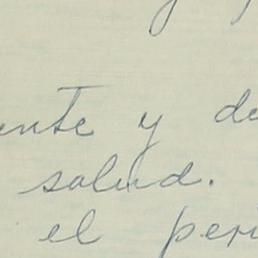 ente y de
salud.
el peri